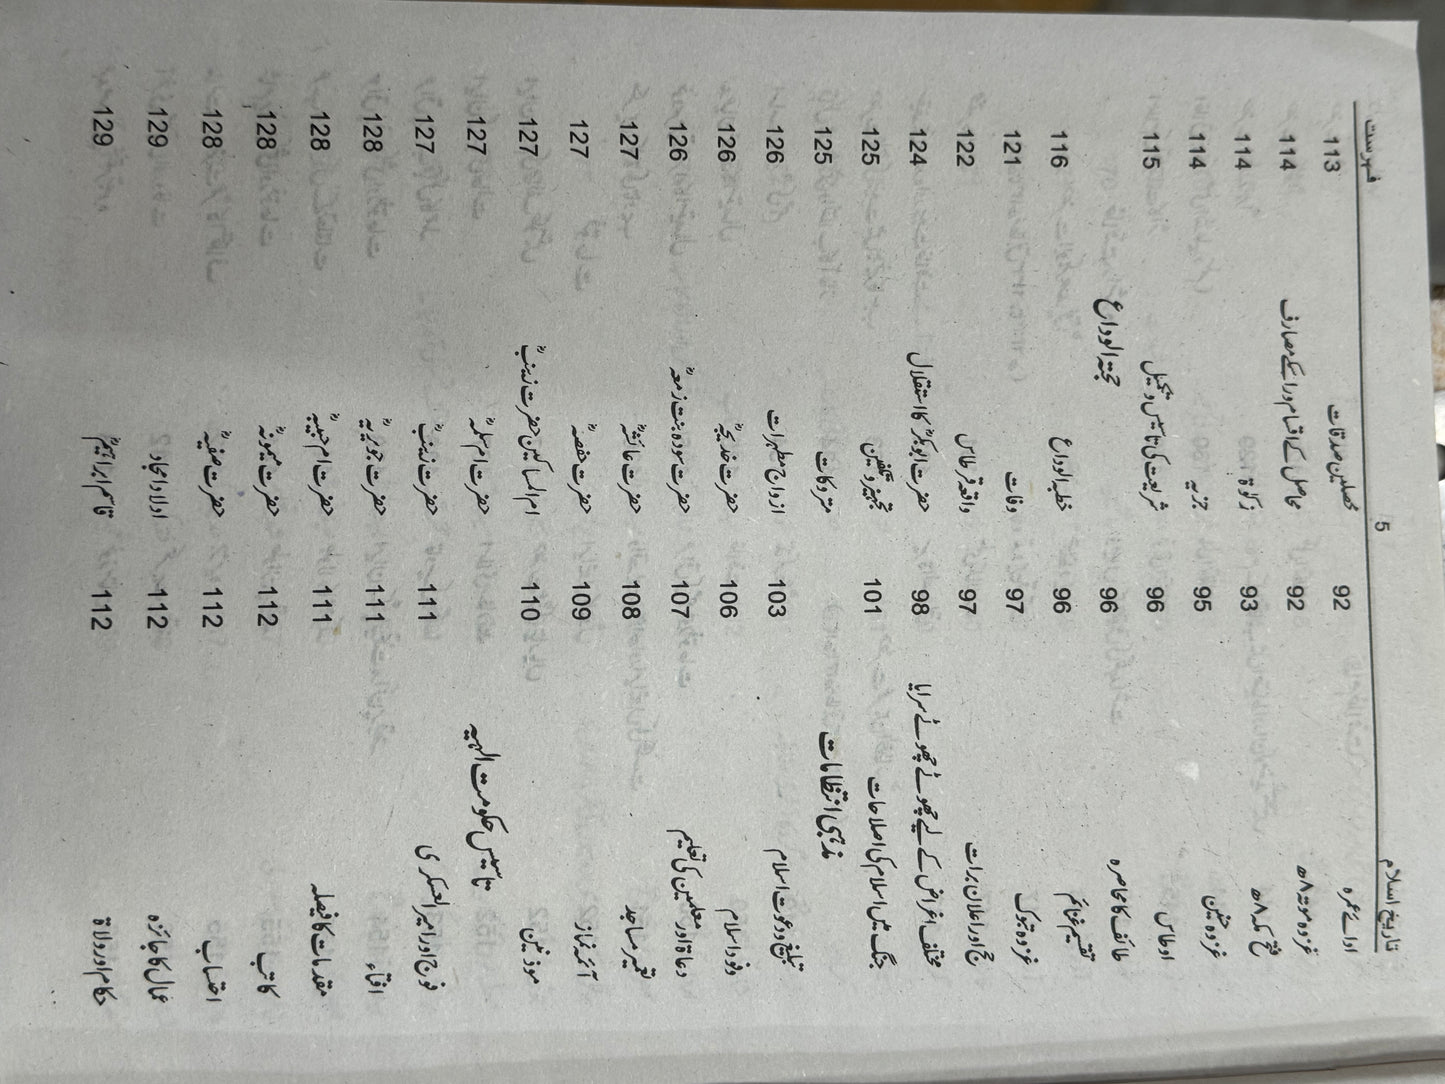 تاریخ اسلام 5 فہرست
ادائے عمرہ 92
غزوہ موتہ ۸ھ 92
فتح مکہ ۸ھ 93
غزوہ حنین 95
اوطاس 96
طائف کا محاصرہ 96
تقسیم غنائم 96
غزوہ تبوک 97
حج اور اعلان برات 97
مختلف اغراض کے لیے چھوٹے چھوٹے سرایا 98
جنگ میں اسلام کی اصلاحات 101
مذہبی انتظامات
تبلیغ و دعوت اسلام 103
وفود اسلام 106
دعاۃ اور معلمین کی تعلیم 107
تعمیر مساجد 108
آئمہ نماز 109
موذنین 110
تاسیس حکومت الہیہ
فوج اور امیر العسکری 111
افتاء 111
مقدمات کا فیصلہ 111
کاتب 112
احتساب 112
عمال کا جائزہ 112
حکام اور ولاۃ 112
محصلین صدقات 113
محاصل کے اقسام اور ان کے مصارف 114
زکوٰۃ 114
جزیہ 114
شریعت کی تاسیس و تکمیل 115
حجۃ الوداع
خطبہ الوداع 116
وفات 121
واقعہ قرطاس 122
حضرت ابوبکرؓ کا استقلال 124
تجہیز و تکفین 125
متروکات 125
ازواج مطہرات 126
حضرت خدیجہؓ 126
حضرت سودہ بنت زمعہؓ 126
حضرت عائشہؓ 127
حضرت حفصہؓ 127
ام المساکین حضرت زینبؓ 127
حضرت ام سلمہؓ 127
حضرت زینبؓ 127
حضرت جویریہؓ 128
حضرت ام حبیبہؓ 128
حضرت میمونہؓ 128
حضرت صفیہؓ 128
اولاد امجاد 129
قاسم ابراہیمؓ 129